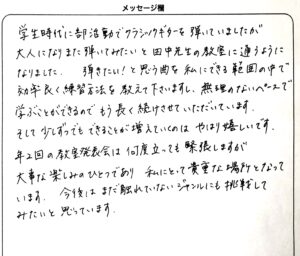 メッセージ欄
学生時代に部活動でクラシックギターを弾いていましたが
大人になりまた弾いてみたいと田中先生の教室に通うように
なりました。 弾きたい!と思う曲を私にできる範囲の中で
効率良く練習方法を教えて下さいますし、無理のないペースで
学ぶことができるのでもう長く続けさせていただいています。
そして少しずつでもできることが増えていくのはやはり嬉しいです。
年2回の教室発表会は何度立っても緊張しますが
大事な楽しみのひとつであり 私にとって貴重な場所となって
います。 今後はまだ触れていないジャンルにも挑戦して
みたいと思っています。